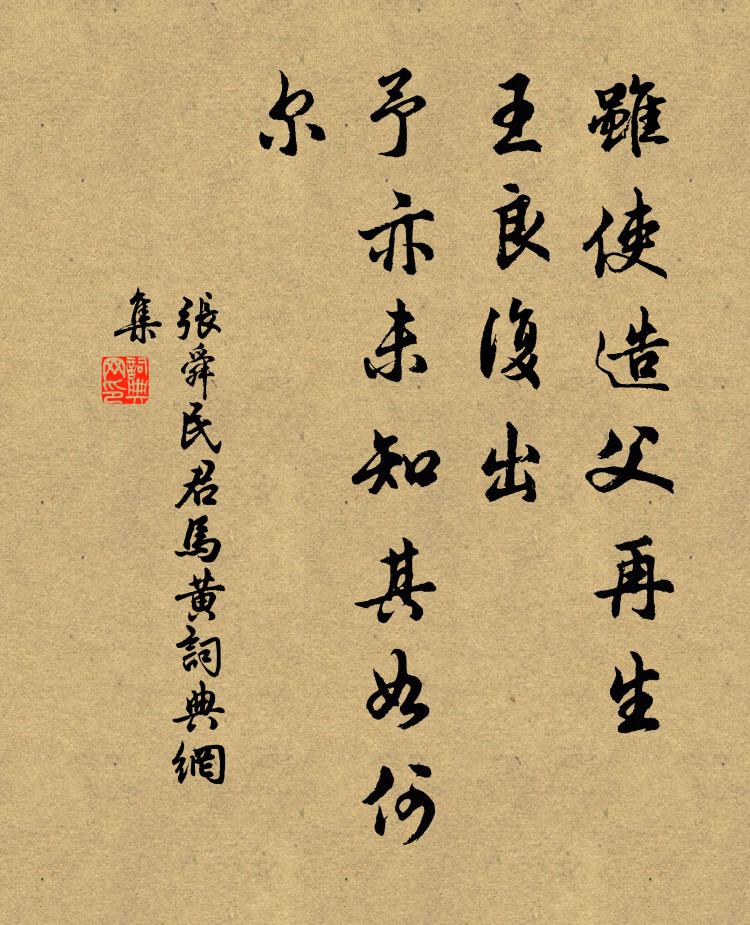 雖使造父再生
王良復出
予亦未知其如何
尔
張舜民君馬黃詞典網
集
詞典
网印